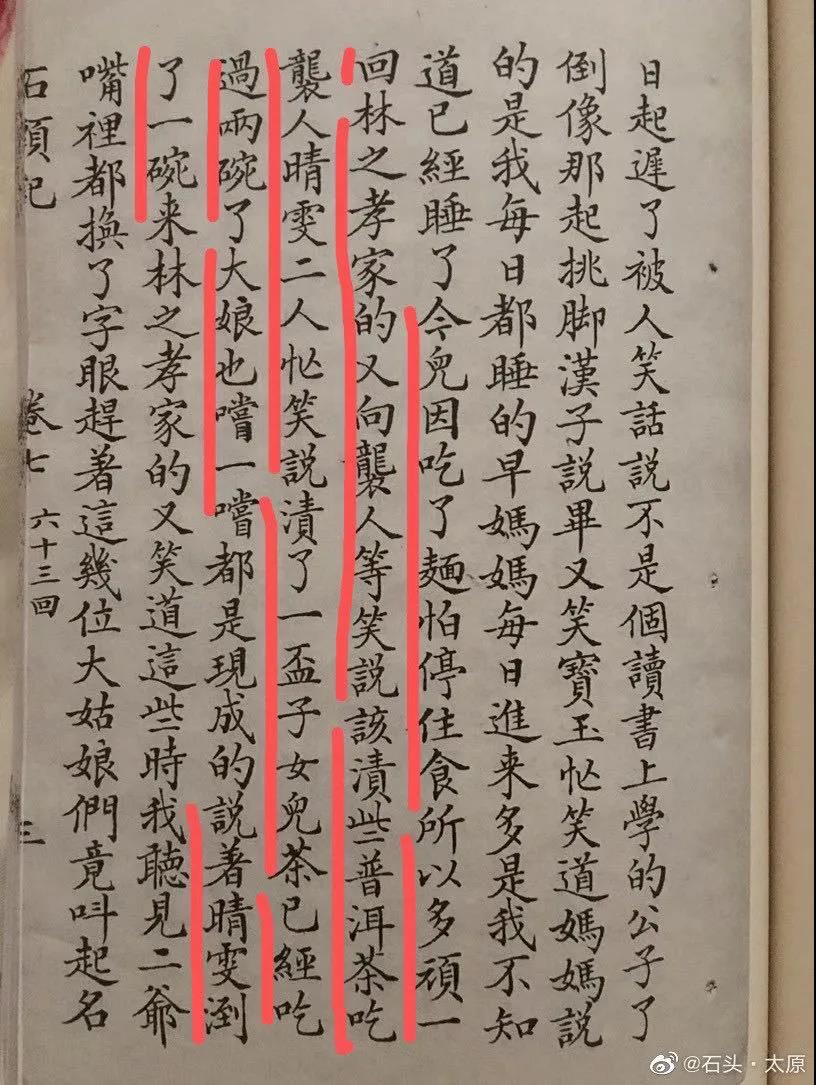 日起遲了被人笑話說不是個讀書上學的公子了
倒像那起挑脚漢子說畢又笑寶玉忙笑道媽媽說
的是我每日都睡的早媽媽每日進来多是我不知
道已經睡了今兒因吃了麵怕停住食所以多頑一
回林之孝家的又向襲人等笑說該漬些普洱茶吃
襲人晴雯二人忙笑說漬了一盃子女兒茶已經吃
過兩碗了大娘也嚐一嚐都是現成的說著晴雯涮
了一碗来林之孝家的又笑道這些時我聽見二爺
嘴裡都換了字眼趕着這幾位大姑娘們竟呌起名
石頭記 卷七 六十三回 三
@石头·太原